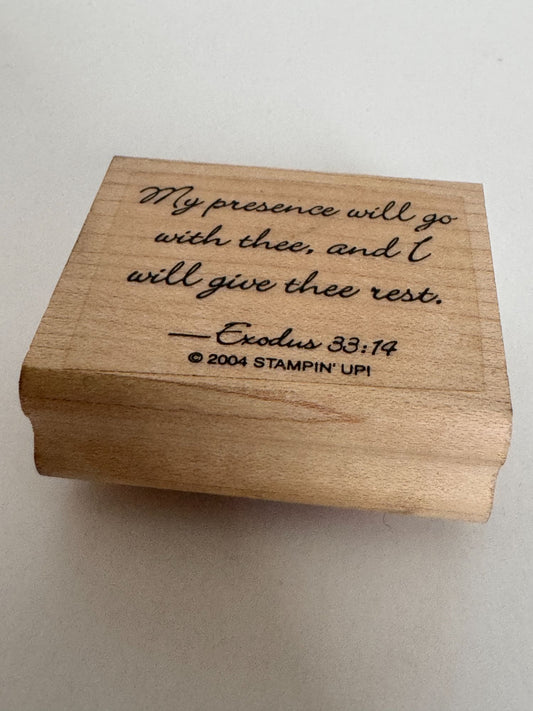 My presence will go
with thee, and I
will give thee rest.
—Exodus 33:14
© 2004 STAMPIN' UP!